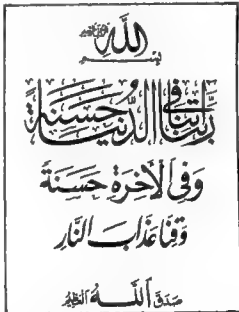 بسم الله الرحمن الرحيم
ربنا آتنا في الدنيا حسنة
وفي الآخرة حسنة
وقنا عذاب النار
صدق الله العظيم